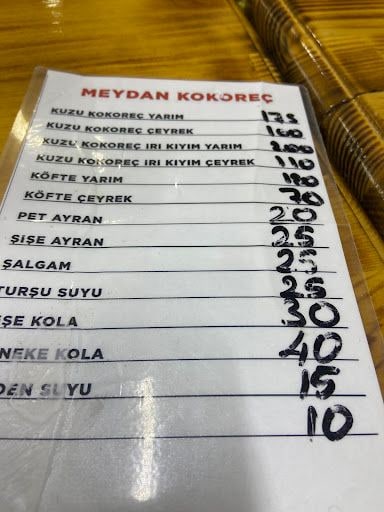 MEYDAN KOKOREÇ
KUZU KOKOREÇ YARIM 175
KUZU KOKOREÇ ÇEYREK 100
KUZU KOKOREÇ IRI KIYIM YARIM 200
KUZU KOKOREÇ IRI KIYIM ÇEYREK 110
KÖFTE YARIM
KÖFTE ÇEYREK 70
PET AYRAN 20
ŞİŞE AYRAN 25
ŞALGAM 25
TURŞU SUYU 25
ŞE KOLA 30
NEKE KOLA 40
DEN SUYU 15
10